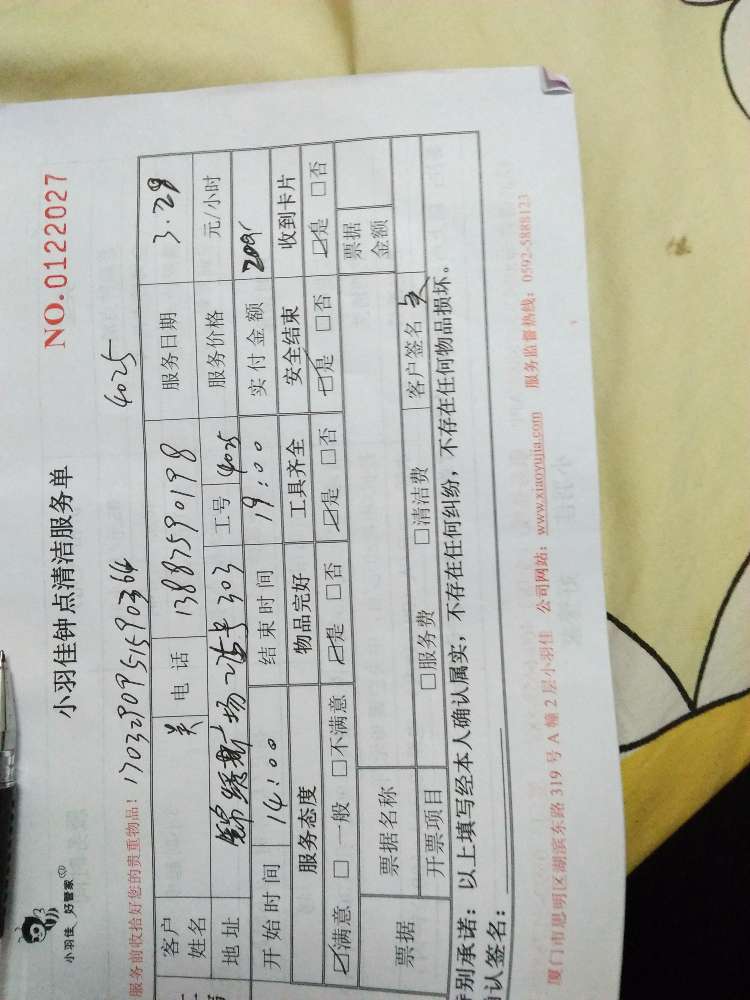 小羽佳 好管家
小羽佳钟点清洁服务单
NO.0122027
服务前收拾好您的贵重物品! 1703290951590364 4025
客户姓名 关 电话 13887590198 服务日期 3.29
地址 锦绣广场 号303 工号 4025 服务价格 元/小时
开始时间 14:00 结束时间 19:00 实付金额 200
服务态度 物品完好 工具齐全 安全结束 收到卡片
☑满意 □一般 □不满意 ☑是 □否 ☑是 □否 ☑是 □否 ☑是 □否
票据 票据名称 票据金额
开票项目 □服务费 □清洁费 客户签名 关
特别承诺:以上填写经本人确认属实,不存在任何纠纷,不存在任何物品损坏。
确认签名:
厦门市思明区湖滨东路 319 号 A 幢 2 层小羽佳 公司网站:www.xiaoyujia.com 服务监督热线:0592-5888123